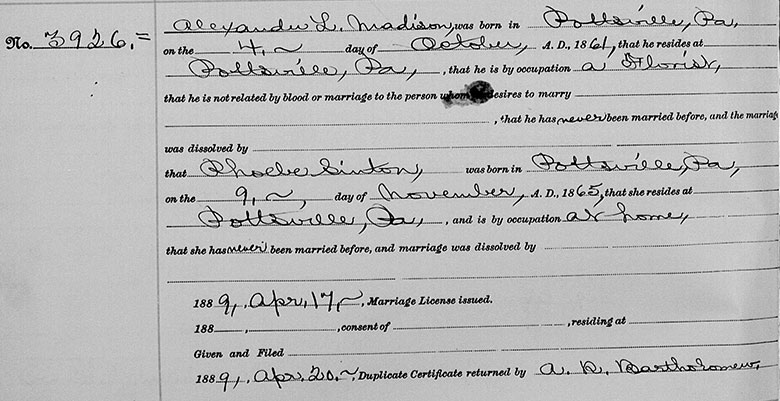 Alexander L. Madison, was born in Pottsville, Pa,
No. 3926.= on the 4, day of October, A. D., 1861, that he resides at
Pottsville, Pa, , that he is by occupation a Florist,
that he is not related by blood or marriage to the person whom desires to marry
, that he has never been married before, and the marriage
was dissolved by
that Phoebe Sinton, was born in Pottsville, Pa,
on the 9, day of November, A. D., 1865, that she resides at
Pottsville, Pa, , and is by occupation at home,
that she has never been married before, and marriage was dissolved by
1889, Apr, 17, , Marriage License issued.
188 , , consent of , residing at
Given and Filed
1889, Apr. 20. , Duplicate Certificate returned by A. R. Bartholomew,